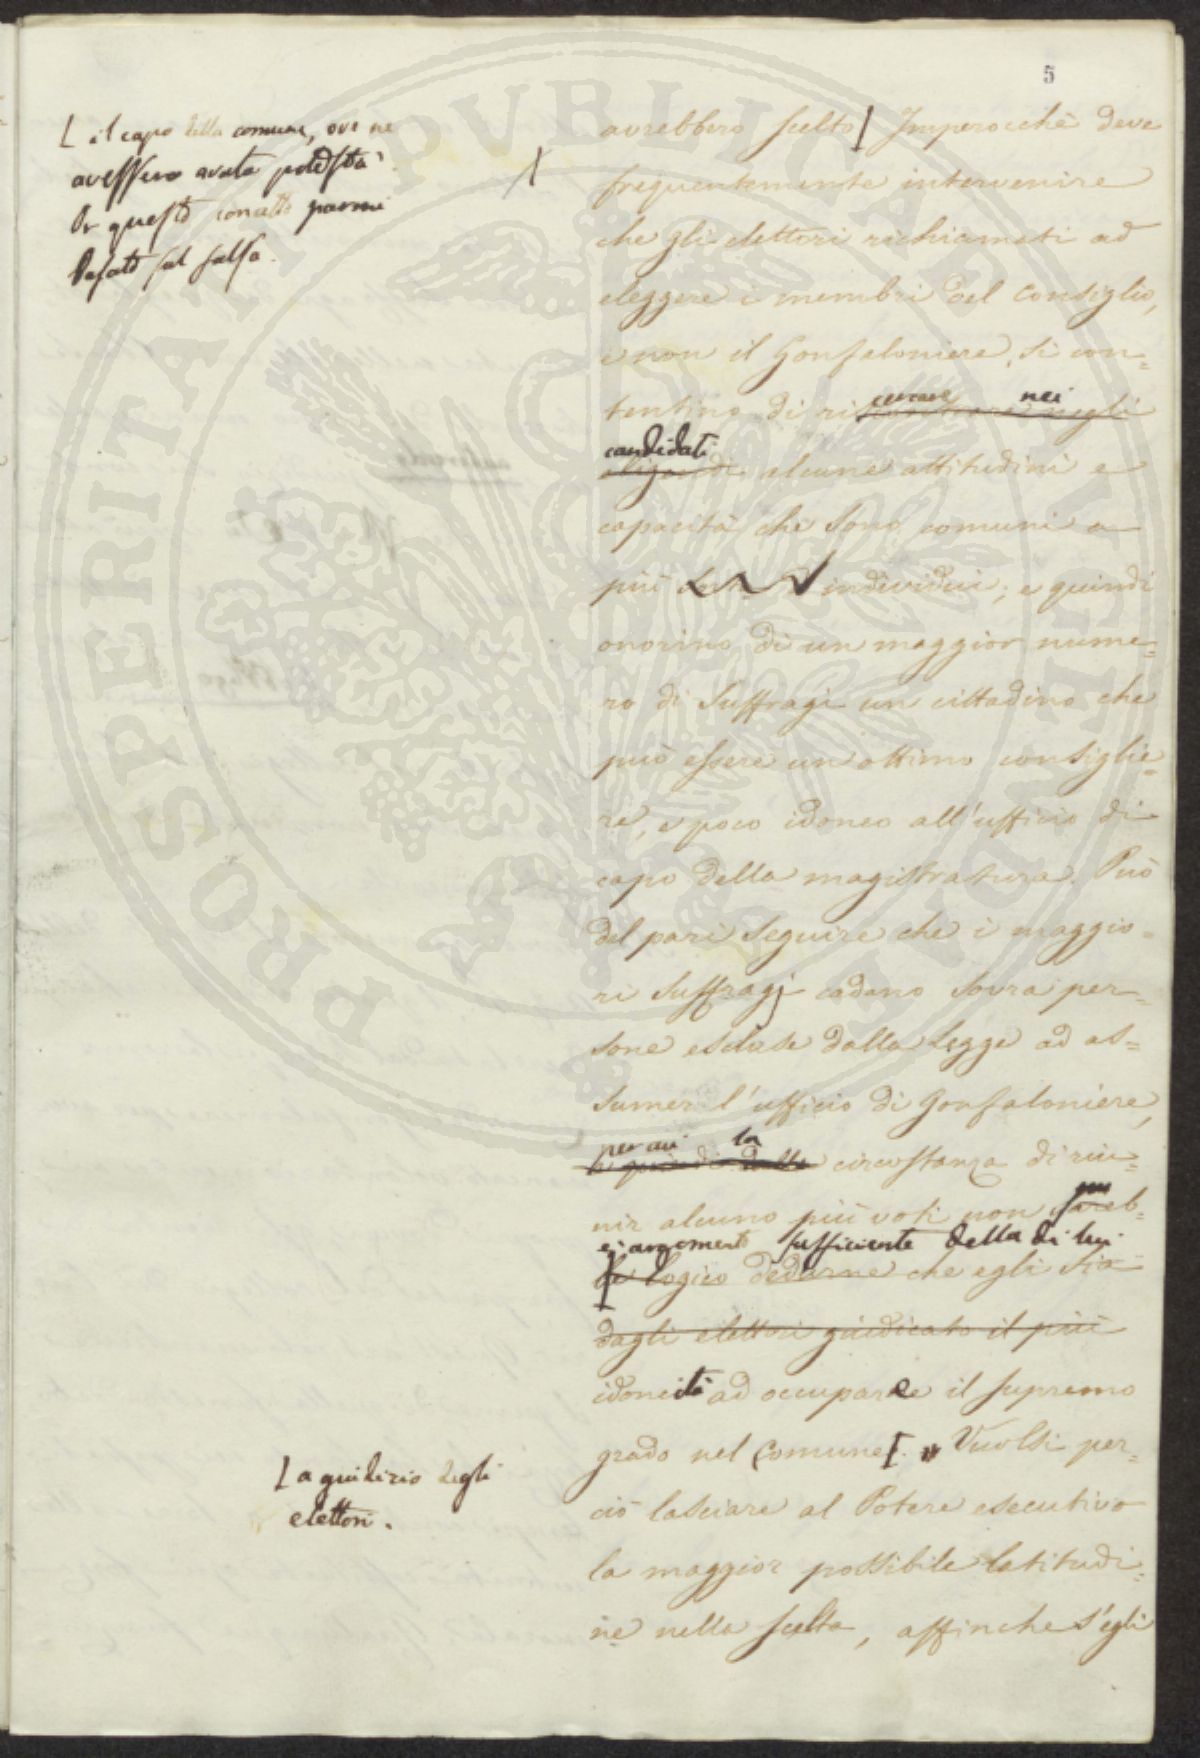 5
[ il capo della comune, ove ne
avessero avuta potestà.
Or questo concetto parmi
basato sul falso.
avrebbero scelto [ Imperocchè deve
frequentemente intervenire
che gli elettori richiamati ad
eleggere i membri del Consiglio,
e non il Gonfaloniere, si con=
tentino di riscontrare negli
cercare nei
candidati
eligendi alcune attitudini e
capacità che sono comuni a
più individui; e quindi
onorino di un maggior nume=
ro di suffragi un cittadino che
può essere un ottimo consiglie=
re, e poco idoneo all'ufficio di
capo della magistratura. Può
del pari seguire che i maggio=
ri suffragj cadano sovra per=
sone escluse dalla legge ad as=
sumer l'ufficio di Gonfaloniere,
per cui la
e quindi dalla circostanza di riu=
nir alcuno più voti non sareb=
argomento sufficiente della di lui
be logico dedurne che egli sia
dagli elettori giudicato il più
idoneità ad occupare il supremo
grado nel Comune [. Vuolsi per=
ciò lasciare al Potere esecutivo
la maggior possibile latitudi=
ne nella scelta, affinche s'egli
[ a giudizio degli
elettori.
PROSPERITATI PVBLICAE